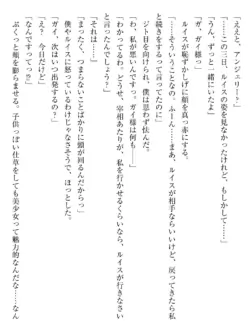 「ええと、アンジェリーナ?」
「……この三日、ルイスの姿を見なかったけれど、もしかして……」
「うん。ずっと一緒にいたよ」
「ガ、ガイ様っ」
ルイスが恥ずかしげに顔を真っ赤にする。
「……そういうことなの。ふーん……まあ、ルイスが相手ならいいけど、戻ってきたら私
と続きをするって言ったのに」
ジト目を向けられ、僕は思わず怯んだ。
「わ、私が悪いんです。ガイ様は何も……」
「わかってるわ。どうせ、宰相あたりが、私を行かせるくらいなら、ルイスが行きなさい
と言ったんでしょう?」
「それは……」
「まったく、つまらないことばかりに頭が回るんだからっ」
僕やルイスに怒っているわけじゃなさそうで、ほっとした。
「ガイ、次はいつ出発するの?」
「え、今日だけど」
「なんですってっ?」
ぷくっと頬を膨らませる。子供っぽい仕草をしても美少女って魅力的なんだな……なんて